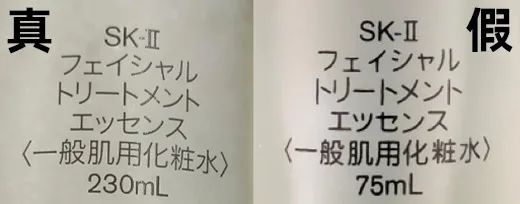 真
SK-Ⅱ
フェイシャル
トリートメント
エッセンス
〈一般肌用化粧水〉
230mL
假
SK-Ⅱ
フェイシャル
トリートメント
エッセンス
〈一般肌用化粧水〉
75mL